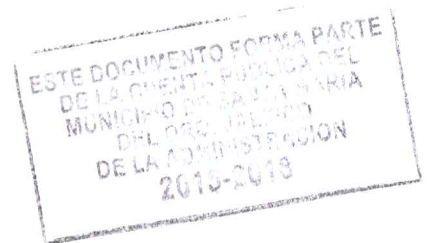 ESTE DOCUMENTO FORMA PARTE
DE LA CUENTA PUBLICA DEL
MUNICIPIO DE SANTA MARIA
DEL ORO, JALISCO
DE LA ADMINISTRACION
2015-2018